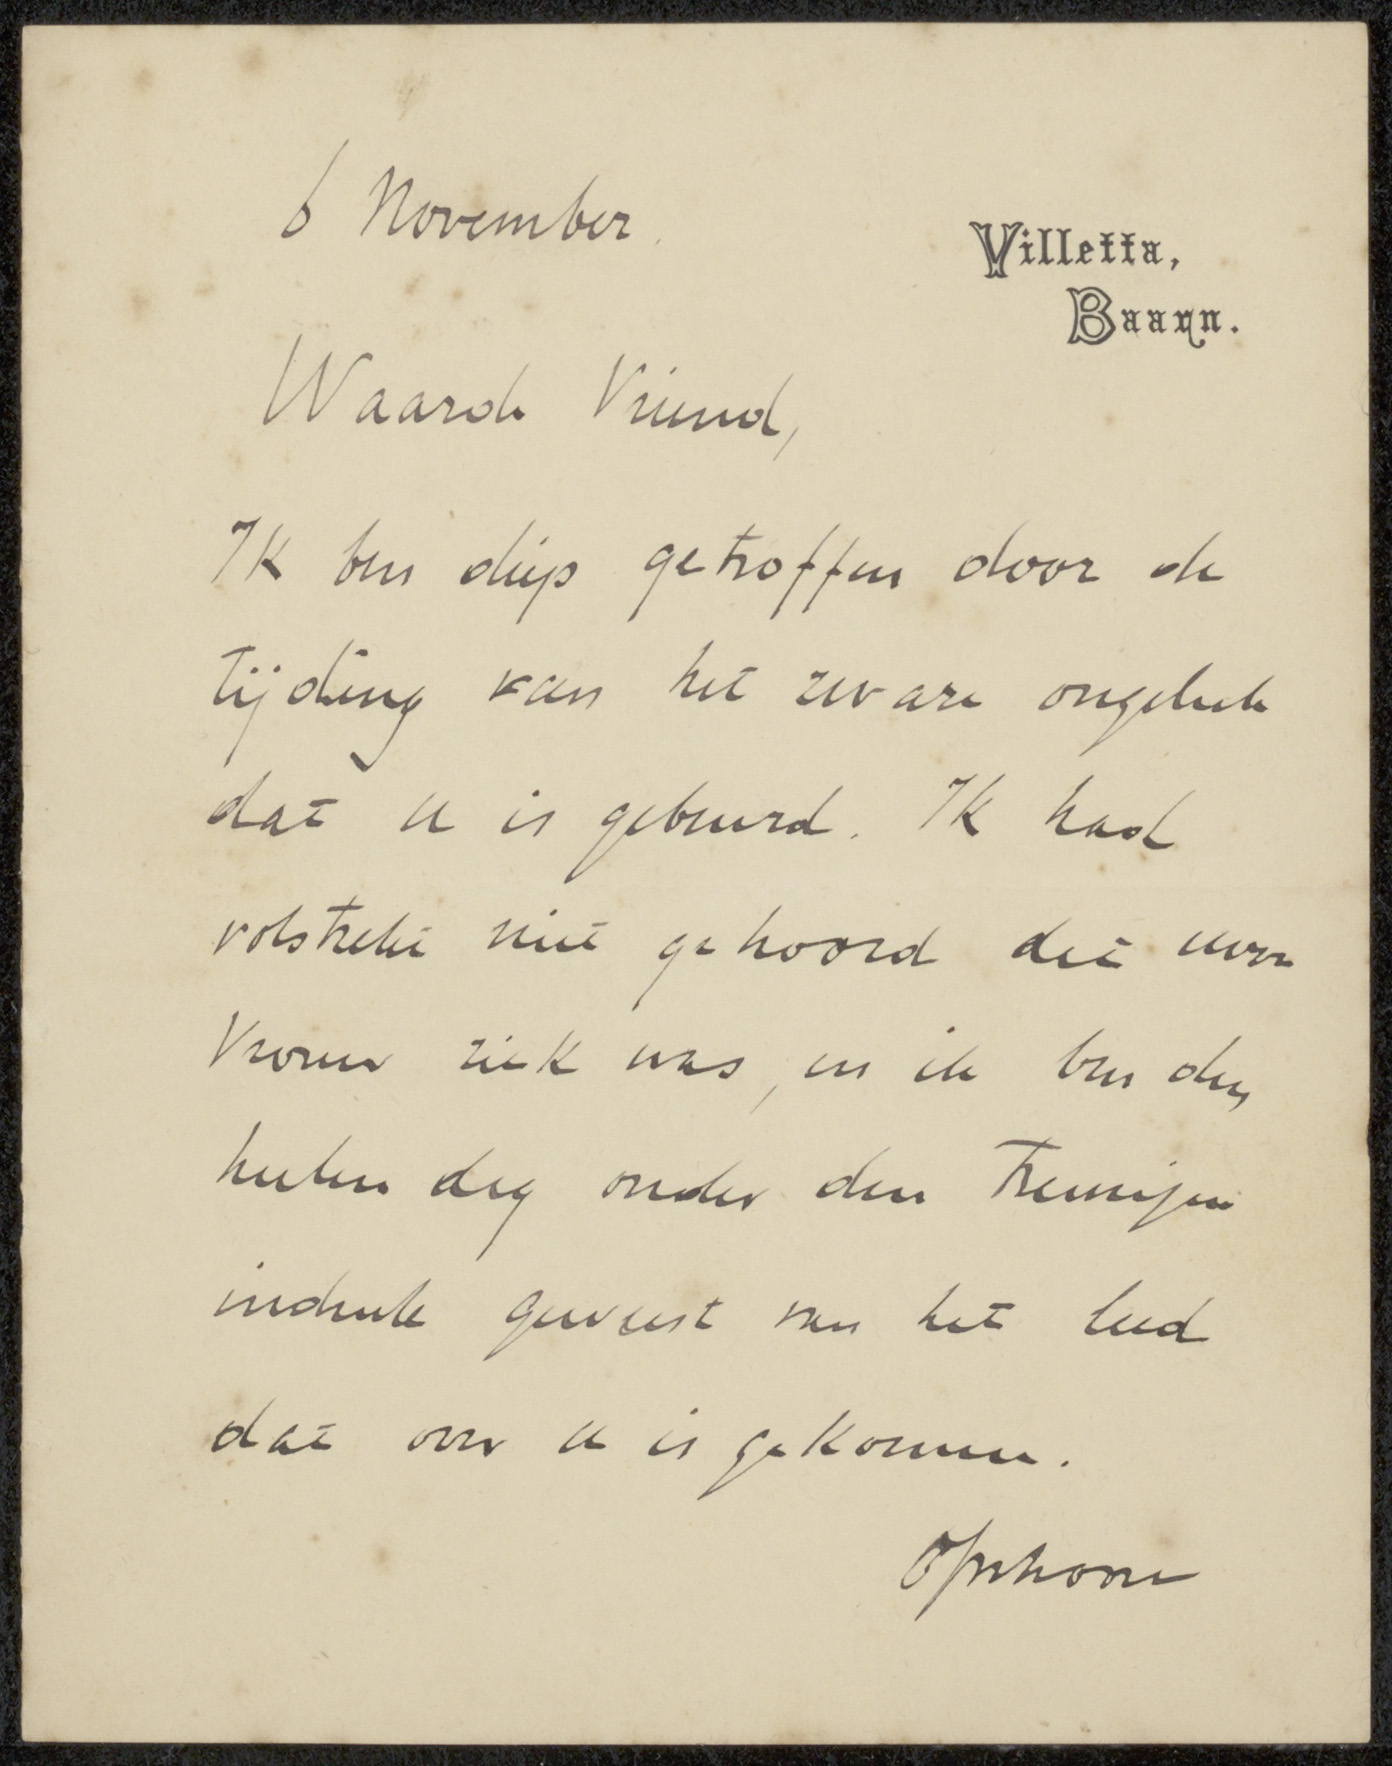 6 November.
Villetta,
Baarn.
Waarde Vriend,
Ik ben diep getroffen door de
tijding van het zware ongeluk
dat u is gebeurd. Ik had
volstrekt niet gehoord dat uwe
Vrouw ziek was, en ik ben den
heelen dag onder den treurigen
indruk geweest van het leed
dat over u is gekomen.